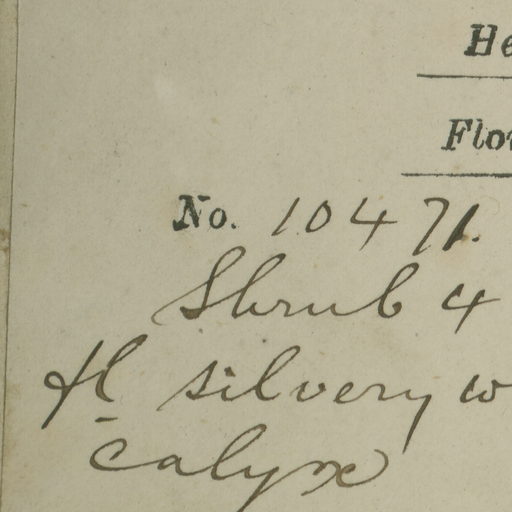 He
Flo
No. 10471.
Shrub 4
fl silvery w
calyx